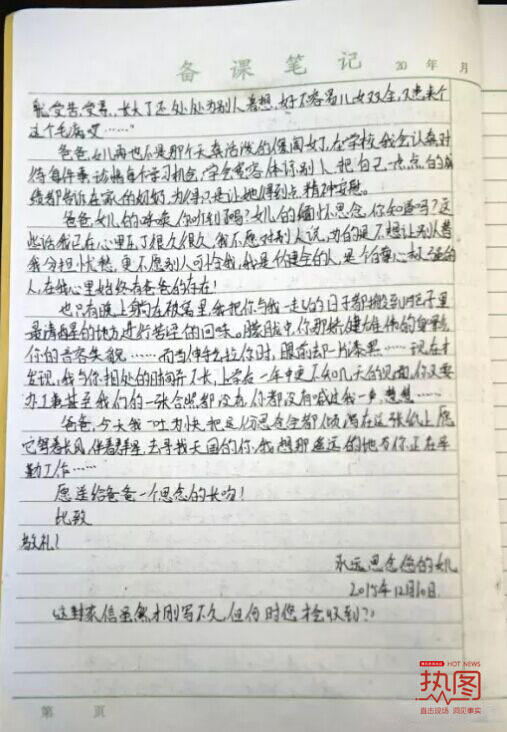 备课笔记 20 年 月
就受苦,受累,长大了还处处为别人着想,好不容易儿女双全,又患来个
这个毛病哎……
爸爸,女儿再也不是那个天真活泼的傻闺女了,在学校我会认真对
待每件事,珍惜每个学习机会,学会宽容体谅别人,把自己一点点的成
绩都告诉在家的奶奶,为得只是让她得到点精神安慰。
爸爸,女儿的呼唤你听到了吗?女儿的缅怀思念,你知道吗?这
些话我已在心里压了很久很久,我不愿对别人说,为的是不想让别人替
我分担忧愁,更不愿别人可怜我,我是个健全的人,是个自尊心极强的
人,在我心里始终有爸爸的存在!
也只有晚上躺在被窝里,我把你与我一走过的日子都搬到脑子里
最清晰的地方进行苦涩的回味。朦胧中,你那矫健雄伟的身躯,
你的音容笑貌……而当伸手去拉你时,眼前却一片漆黑……现在才
发现,我与你相处的时间并不长,上学在一年中更不知几天的见面,你又要
办工事甚至我们的一张合照都没有,你都没有喊过我一声,慧慧……
爸爸,今天我一吐为快,把这份思念全都倾泻在这张纸上,愿
它乘着长风,伴着群星,去寻找天国的你,我想那遥远的地方,你正在辛
勤工作……
愿送给爸爸一个思念的长吻!
比致
敬礼!
永远思念您的女儿
2015年12月10日
(这封家信虽然才刚写不久,但何时您才会收到?)
HOT NEWS
执图
直击现场 洞见事实
第 页